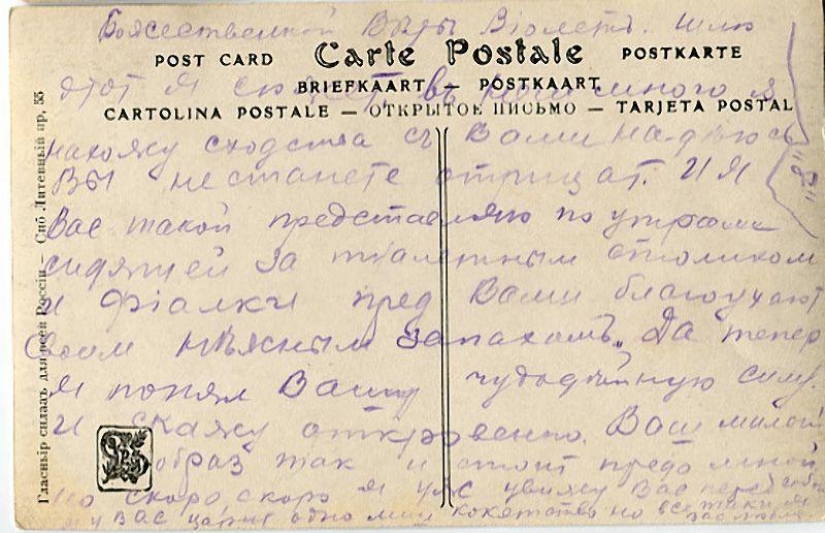 Божественной Виолетъ. шлю
POST CARD Carte Postale POSTKARTE
этот я много я
BRIEFKAART — POSTKAART
CARTOLINA POSTALE — ОТКРЫТОЕ ПИСЬМО — TARJETA POSTAL
нахожу сходства съ Вами на-дѣюсь
Вы не станете отрицат. И я
Вас такой представляю по утрами
сидящей за туалетным столиком
и фіалки пред Вами благоухают
своим нѣжным запахомъ. Да тепер
я понял Вашу чудодѣйную силу.
и скажу откровенно. Ваш милой
образ так и стоит предо мной
но скоро скоро я уж увижу Вас перед собой
у Вас одно кокетство но все таки я
Вас люблю
Главный складъ для всей Россіи — Спб Литейный пр. 55